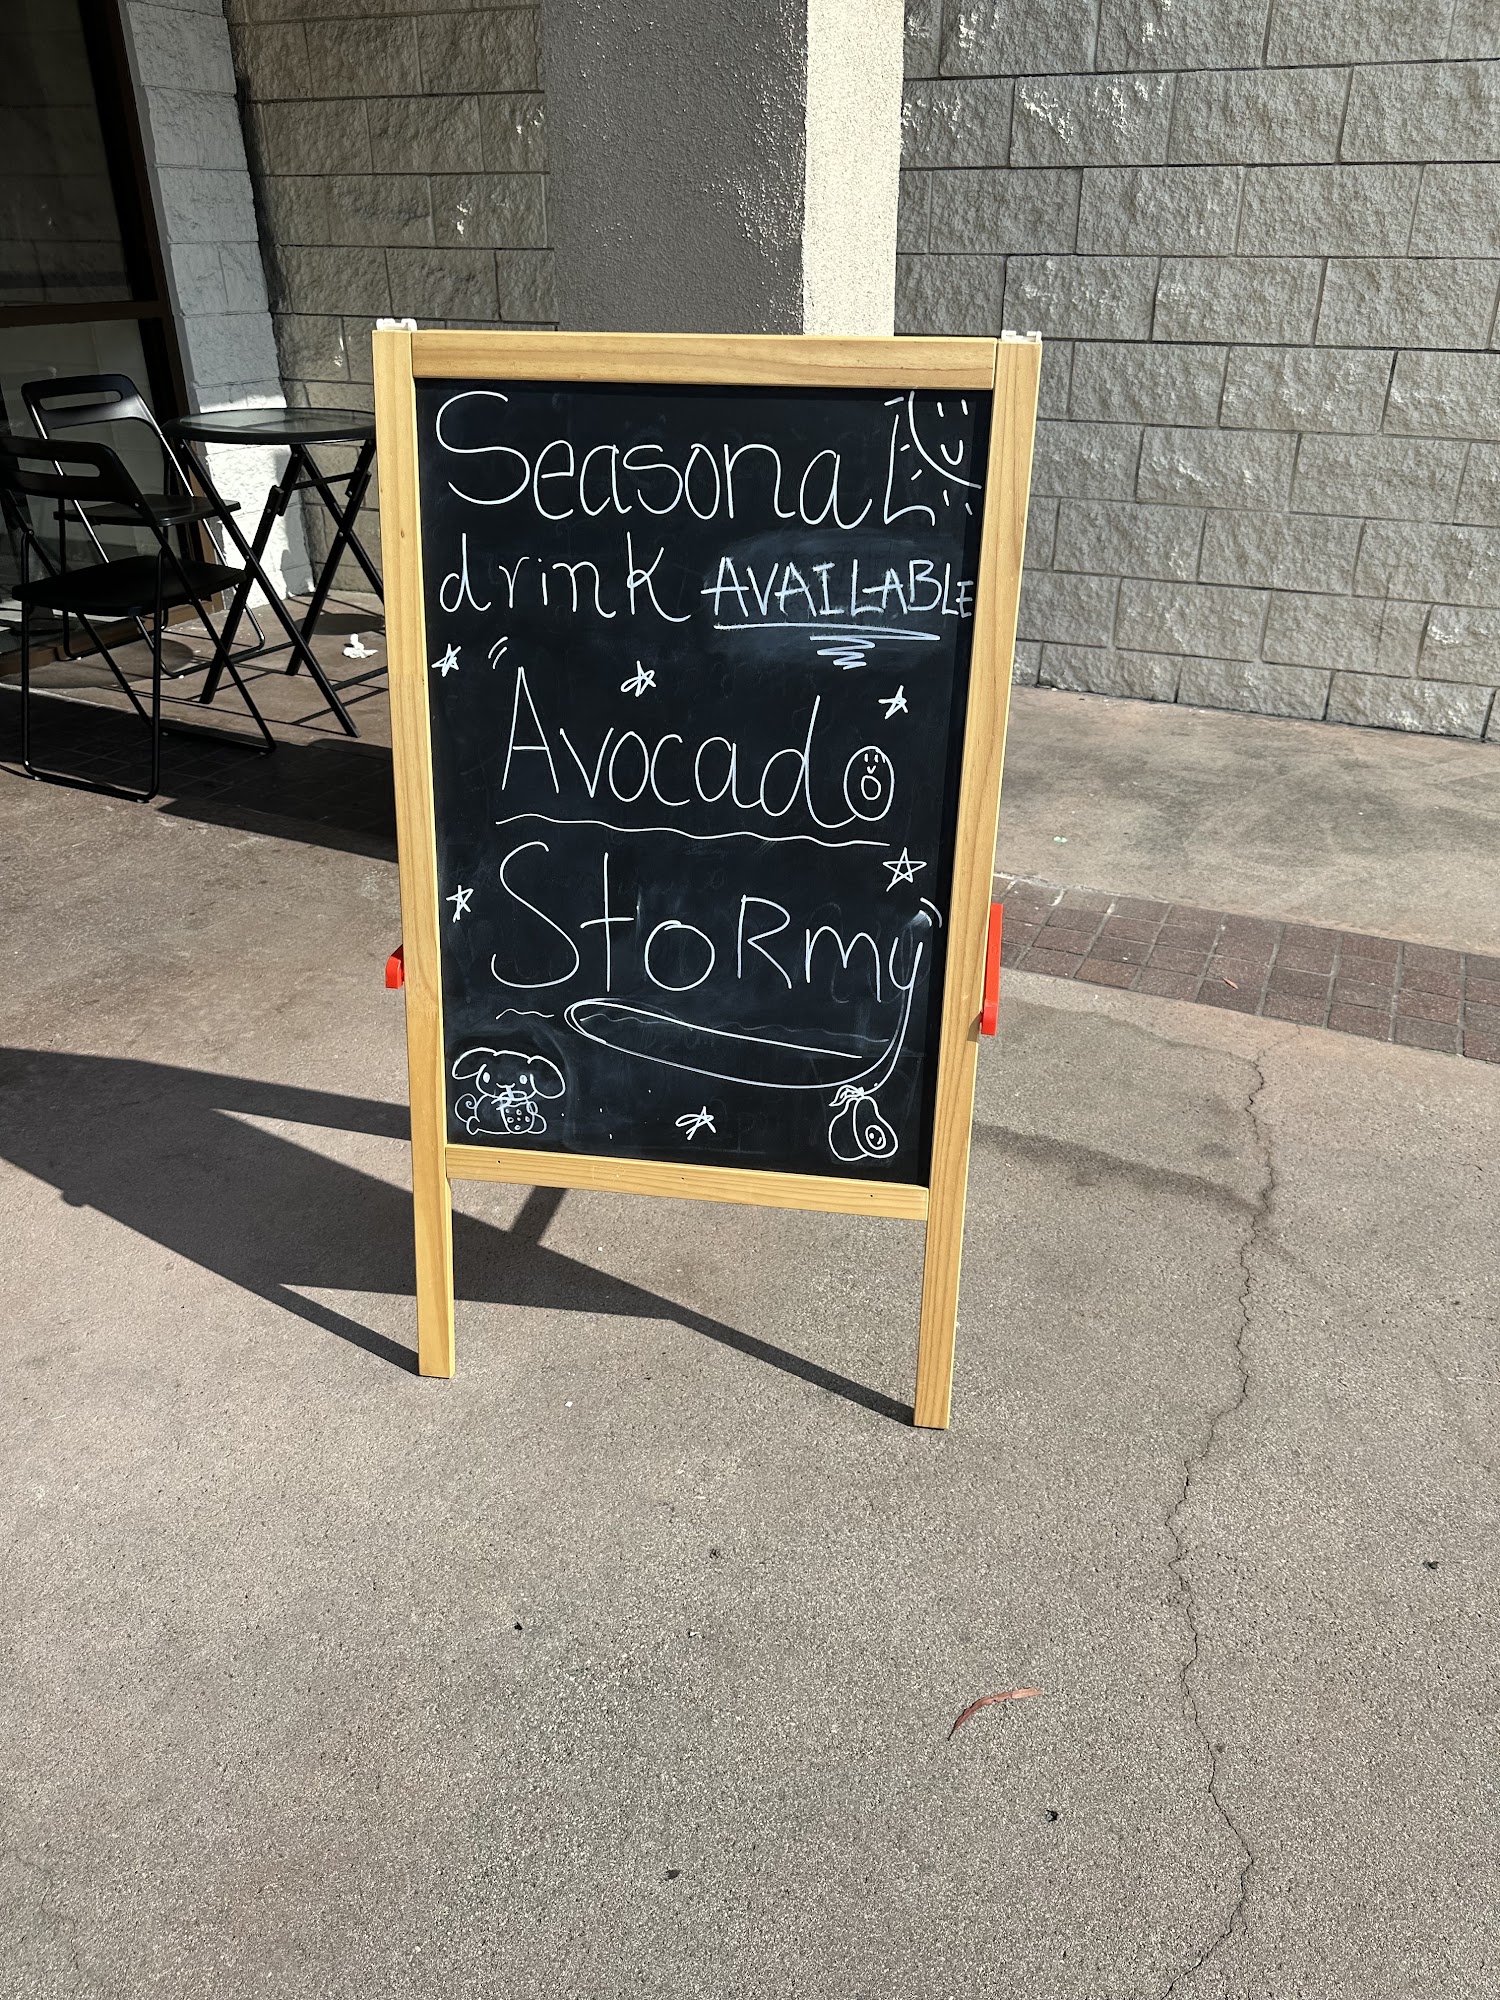 Seasonal
drink AVAILABLE
Avocado
StoRmy